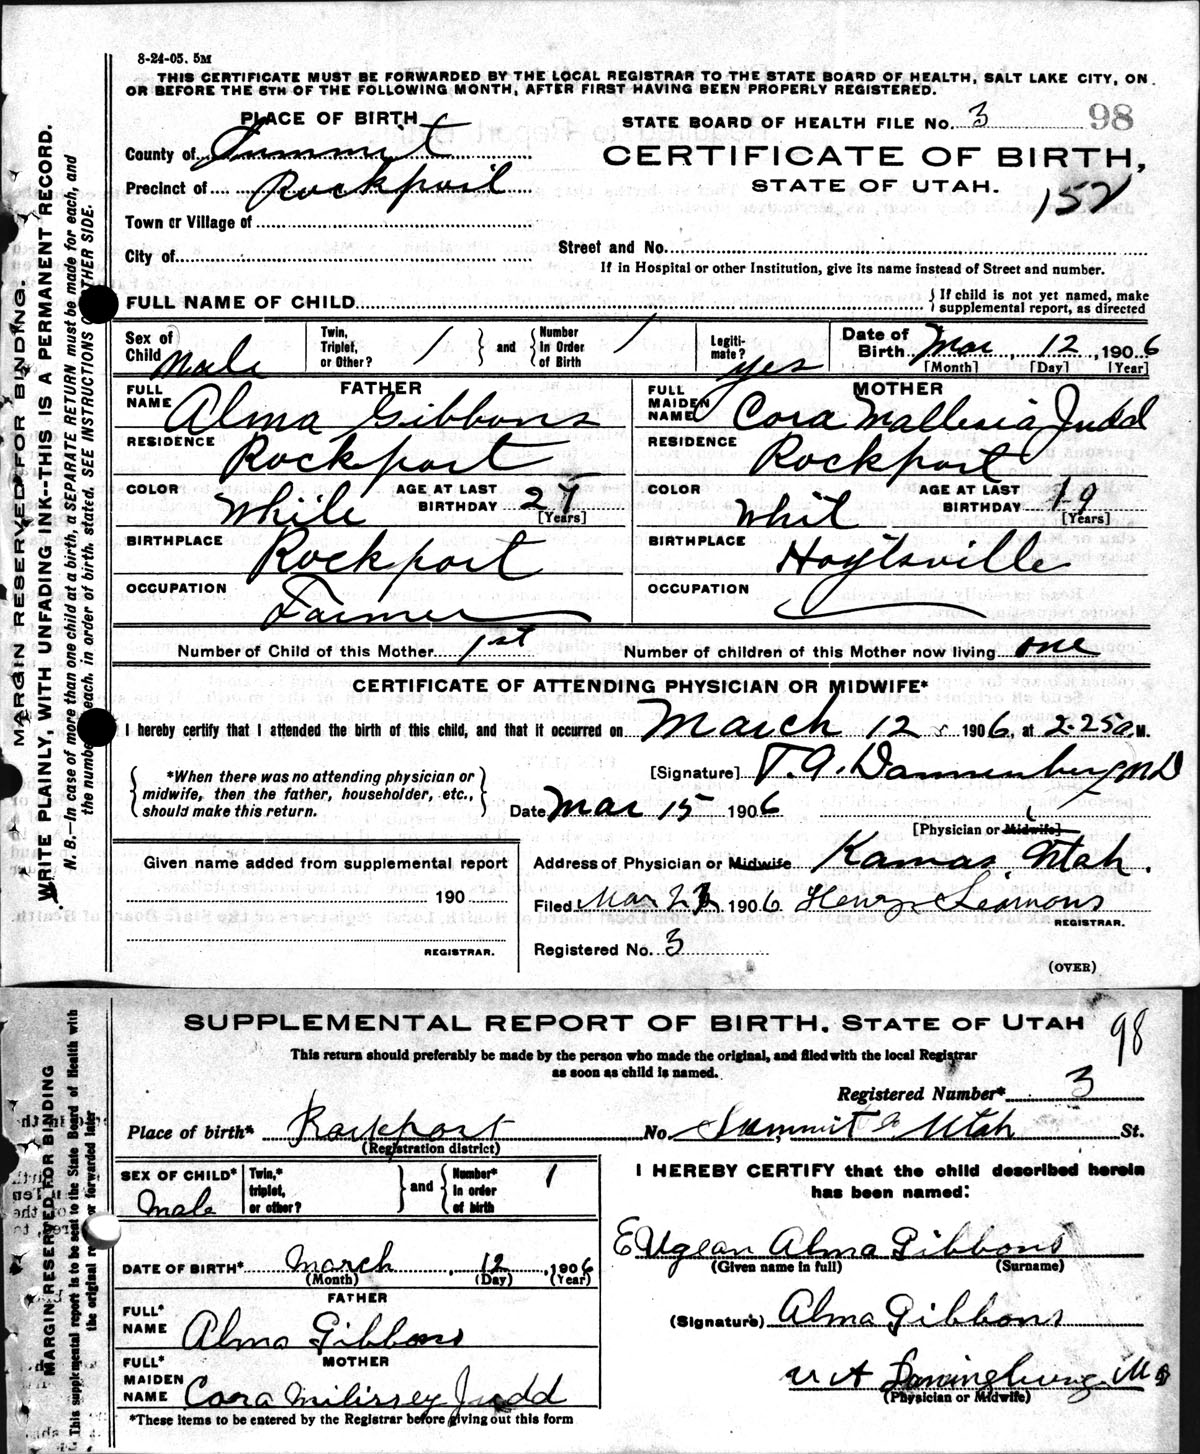 8-24-05. 5M
THIS CERTIFICATE MUST BE FORWARDED BY THE LOCAL REGISTRAR TO THE STATE BOARD OF HEALTH, SALT LAKE CITY, ON
OR BEFORE THE 5TH OF THE FOLLOWING MONTH, AFTER FIRST HAVING BEEN PROPERLY REGISTERED.
PLACE OF BIRTH
STATE BOARD OF HEALTH FILE No. 3 98
County of Summit
CERTIFICATE OF BIRTH,
Precinct of Rockport
STATE OF UTAH.
152
Town or Village of
City of
Street and No.
If in Hospital or other Institution, give its name instead of Street and number.
FULL NAME OF CHILD
{ If child is not yet named, make
supplemental report, as directed
Sex of Child Male
Twin, Triplet, or Other? 1 } and { Number In Order of Birth 1
Legitimate? yes
Date of Birth Mar, 12, 1906
[Month] [Day] [Year]
FATHER
FULL NAME Alma Gibbons
RESIDENCE Rockport
COLOR White AGE AT LAST BIRTHDAY 27 [Years]
BIRTHPLACE Rockport
OCCUPATION Farmer
MOTHER
FULL MAIDEN NAME Cora Mallesia Judd
RESIDENCE Rockport
COLOR Whit AGE AT LAST BIRTHDAY 19 [Years]
BIRTHPLACE Hoytsville
OCCUPATION
Number of Child of this Mother 1st Number of children of this Mother now living one
CERTIFICATE OF ATTENDING PHYSICIAN OR MIDWIFE*
I hereby certify that I attended the birth of this child, and that it occurred on March 12 1906, at 2.25 a.M.
{ *When there was no attending physician or
midwife, then the father, householder, etc.,
should make this return. }
[Signature] T. A. Dannenberg MD
Date Mar 15 1906
[Physician or Midwife]
Address of Physician or Midwife Kamas Utah.
Given name added from supplemental report
190
REGISTRAR.
Filed Mar 1906 Henry Seamons
REGISTRAR.
Registered No. 3
(OVER)
MARGIN RESERVED FOR BINDING.
WRITE PLAINLY, WITH UNFADING INK--THIS IS A PERMANENT RECORD.
N. B.—In case of more than one child at a birth, a SEPARATE RETURN must be made for each, and
the number each, in order of birth, stated. SEE INSTRUCTIONS OTHER SIDE.
SUPPLEMENTAL REPORT OF BIRTH. STATE OF UTAH 98
This return should preferably be made by the person who made the original, and filed with the local Registrar
as soon as child is named.
Registered Number* 3
Place of birth* Rockport No. Summit Co Utah St.
(Registration district)
SEX OF CHILD* Male
Twin,* triplet, or other? } and { Number* in order of birth 1
DATE OF BIRTH* March, 12, 1906
(Month) (Day) (Year)
FATHER
FULL* NAME Alma Gibbons
MOTHER
FULL* MAIDEN NAME Cora Milissey Judd
*These items to be entered by the Registrar before giving out this form
I HEREBY CERTIFY that the child described herein
has been named:
EUgean Alma Gibbons
(Given name in full) (Surname)
(Signature) Alma Gibbons
(Physician or Midwife)
MARGIN RESERVED FOR BINDING
This supplemental report is to be sent to the State Board of Health with
the original or forwarded later